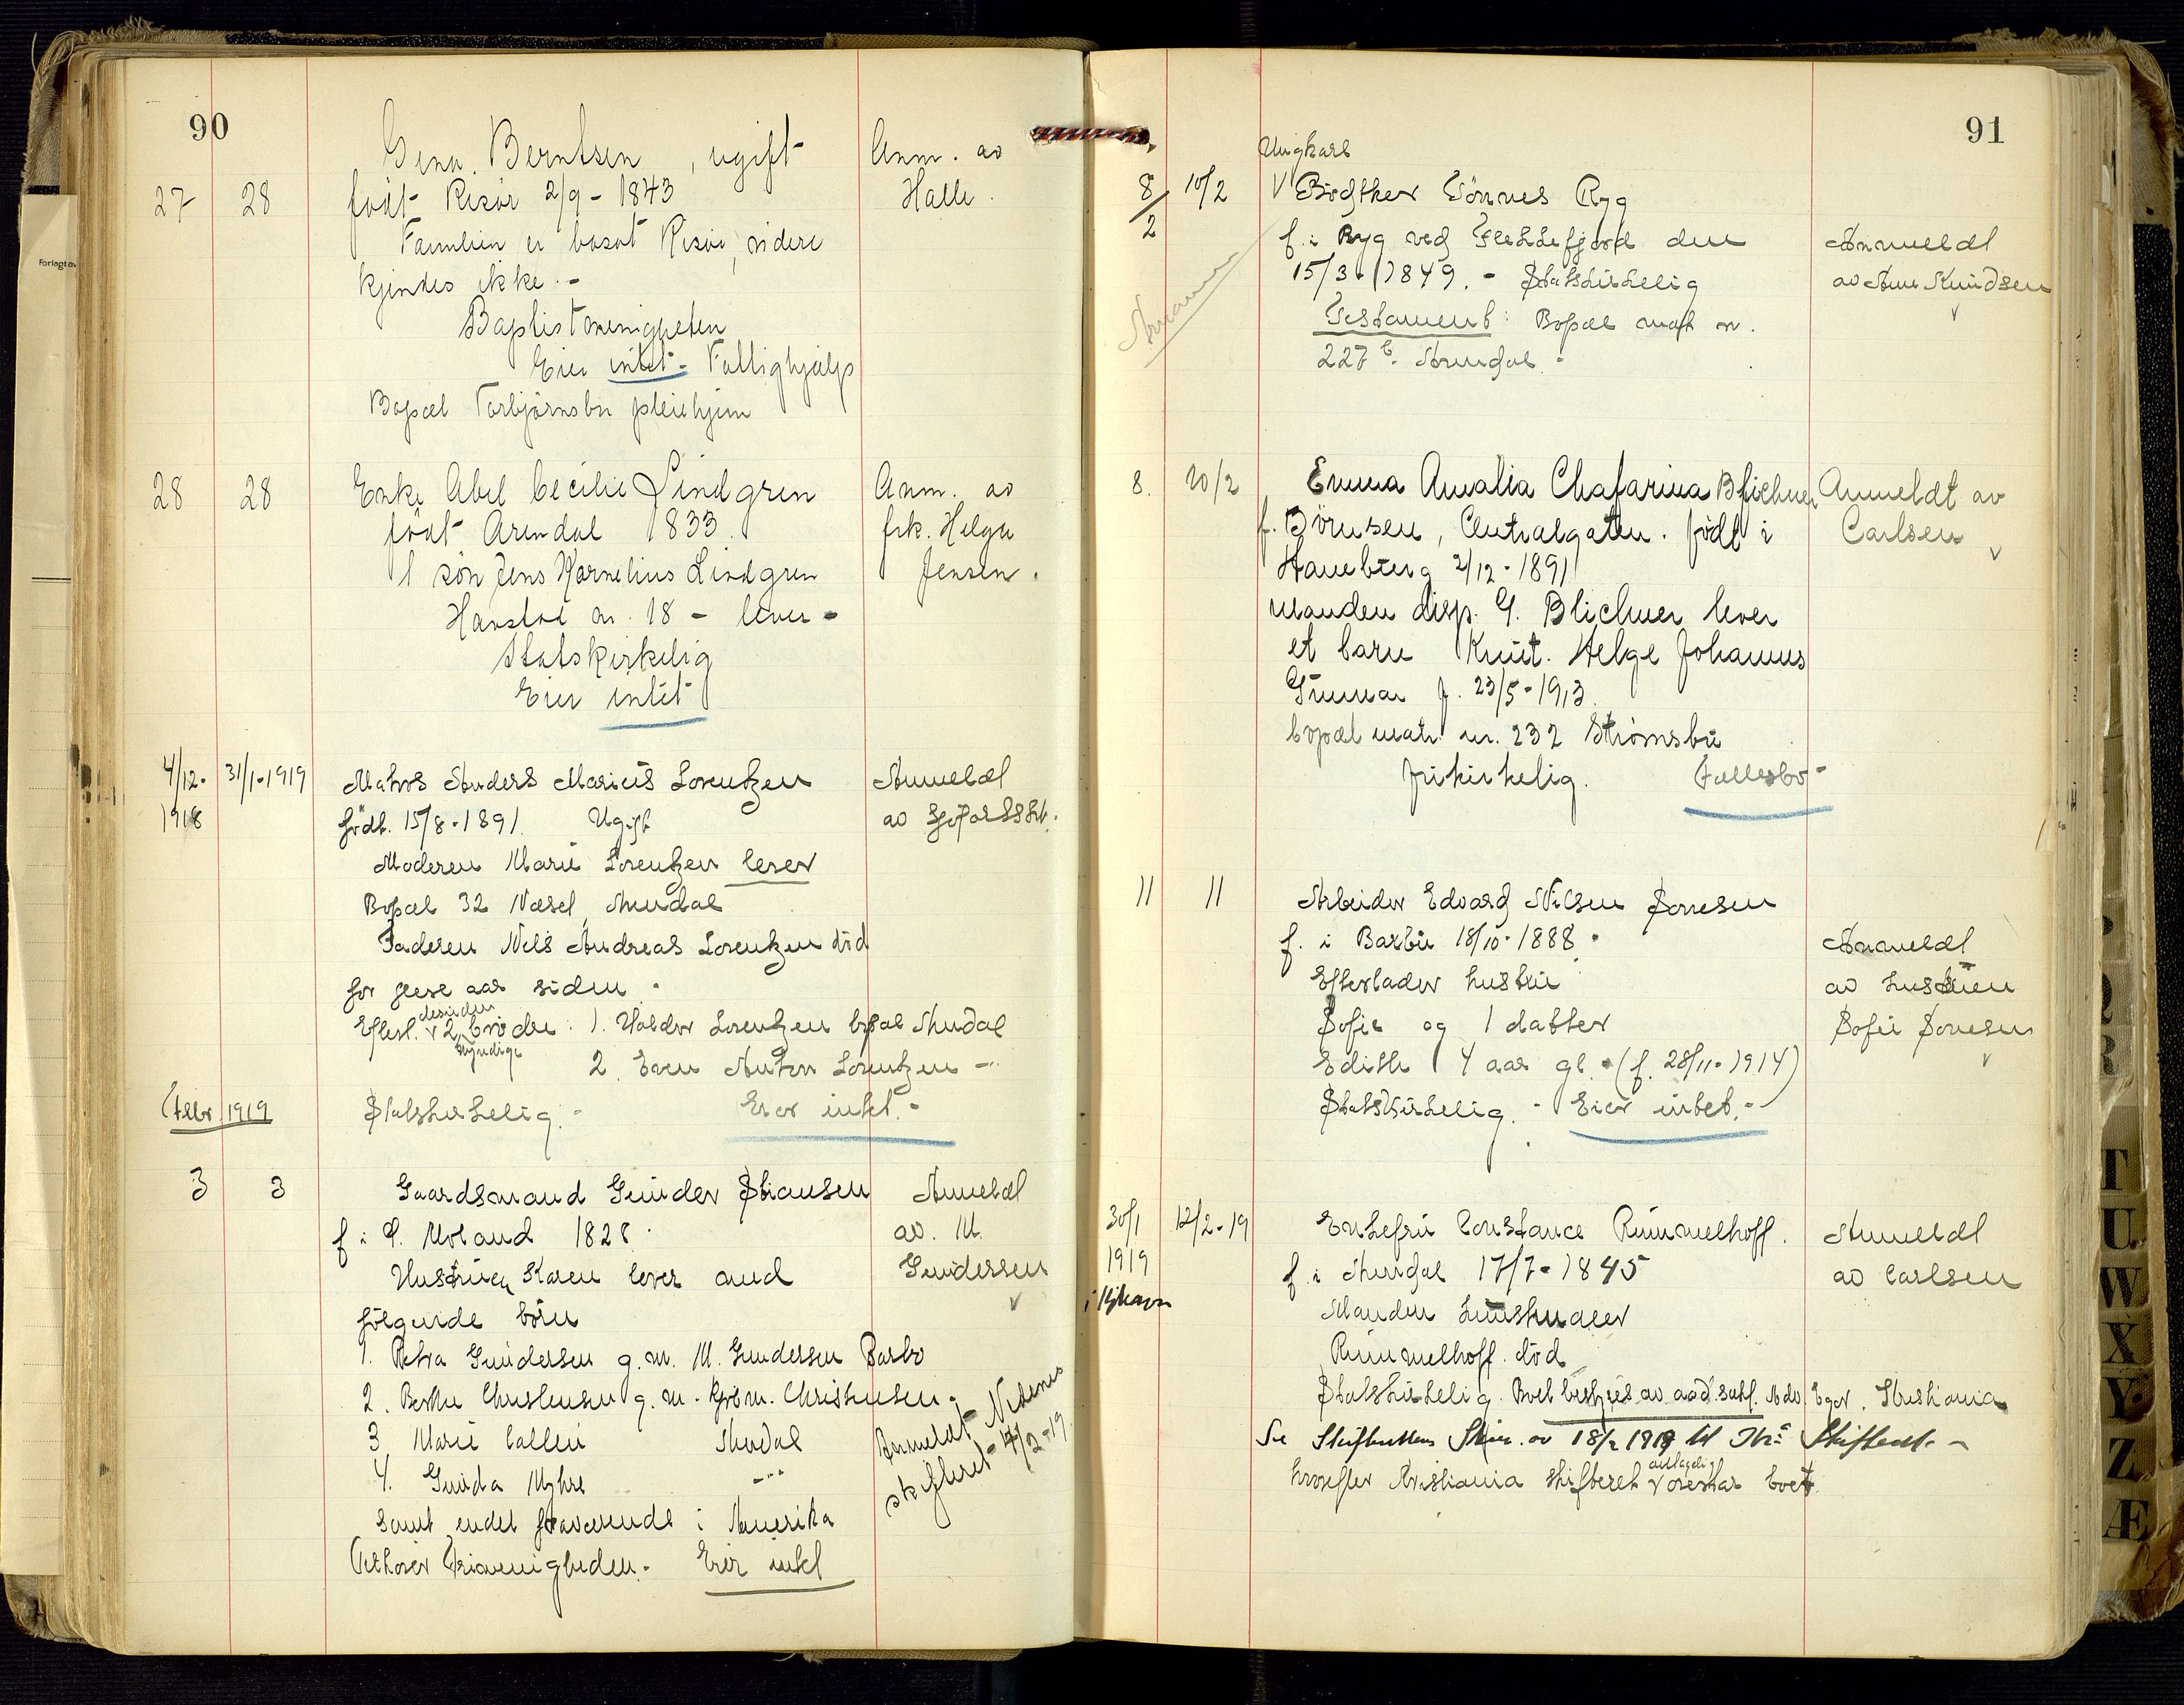 90
Gina Berntsen, ugift Anm. av
27 28 født Risør 2/9 - 1843 Halle.
Familien er bosat Risør, videre
kjendes ikke. -
Baptistmenigheten
Eier intet - Fattighjælp
Bopæl Torbjørnsbu pleiehjem
28 28 Enke Abel Cecilie Lindgren Anm. av
født Arendal 1833. frk. Helga
1 søn Jens Kornelius Lindgren Jensen.
Havstad nr. 18 - lever -
Statskirkelig
Eier intet
4/12- 31/1-1919 Matros Anders Marius Lorentzen Anmeldt
1918 født. 15/8-1891. Ugift av
Moderen Marie Lorentzen lever
Bopæl 32 Arendal
Faderen Nils Andreas Lorentzen død
for flere aar siden.
desuden
Efterl. v 2 brødre: 1. Halvdor Lorentzen bopæl Arendal
myndige
2. Even Anton Lorentzen -"-
Febr 1919 Statskirkelig. - Eier intet. -
3 3 Gaardsmand Gunder Stiansen Anmeldt
f. i Ø. Moland 1828. av. M.
Hustruen Karen lever and Gundersen
følgende børn v
1. Petra Gundersen g. m. M. Gundersen Barbo
2. Berthe Christensen g. m. Christensen.
3 Marie Callin Arendal
4. Gunda Myhre -"-
Anmeldt Nedenes
skifteret 4/2-19
samt endel fraværende i Amerika
Tilhører Frimenigheden. - Eier intet
91
Ungkarl
8/2 10/2 v Bødtker Tønnes Ryg
f. i Ryg ved Flekkefjord den Anmeldt
15/3-1849. - Statskirkelig av Ane Knudsen
Testament: Bopæl matr nr. v
227 b. Arendal.
8. 10/2 Emma Amalia Chatarina Blichner Anmeldt av
f. Børnsen, Centralgaten. født i Carlsen
2/12-1891 v
manden disp. G. Blichner lever
et barn Knut. Helge Johannes
Gunnar f. 23/5-1913.
bopæl matr. nr. 232 Strømsbu
frikirkelig. Fællesbo -
11 11 Arbeider Edvard Nilsen Sørresen
f. i Barbu 18/10-1888. Anmeldt
Efterlader hustru av hustruen
Sofie og 1 datter Sofie Sørresen
Edith 4 aar gl. (f. 28/11-1914) v
Statskirkelig. - Eier intet. -
30/1 12/2-19 Enkefru Constance Rummelhoff. Anmeldt
1919 f. i Arendal 17/7-1845 av Carlsen
i Kjhavn Manden
Rummelhoff. død
Statskirkelig. Boet av adv. Eger, Kristiania
Se Skifterettens av 18/2 1919 til Kra Skifteret. -
antagelig
hvorefter Kristiania skifteret v boet.